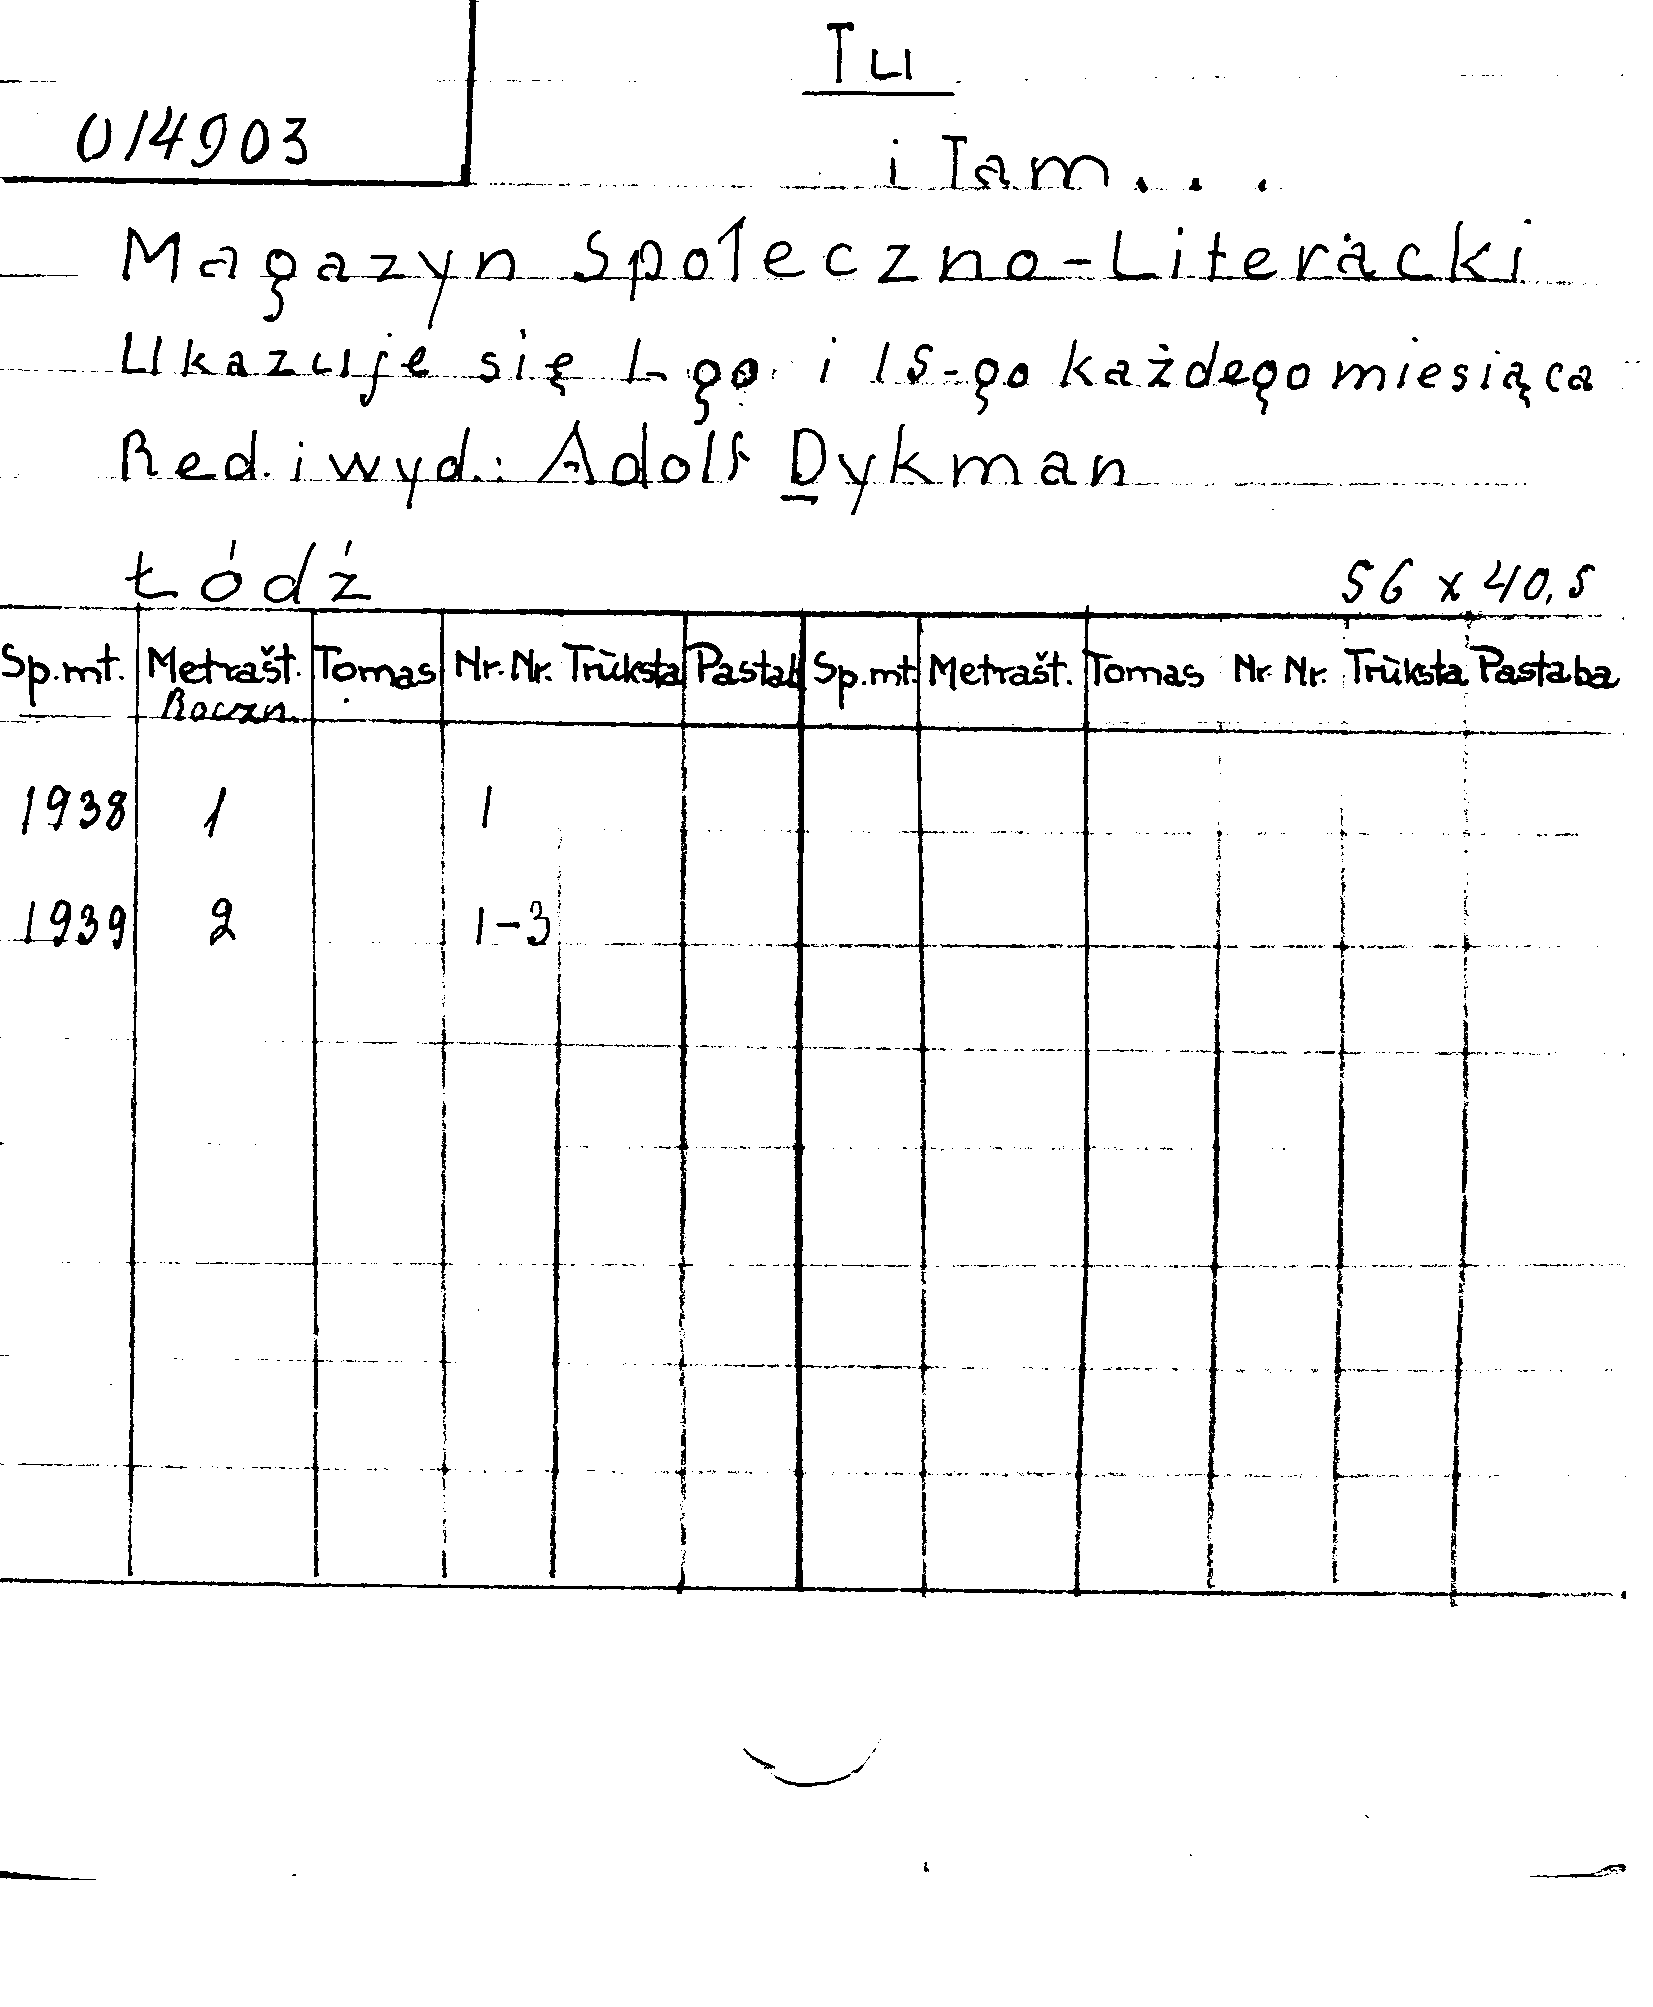 Tu
014903
i Tam...
Magazyn Społeczno-Literacki
Ukazuje się 1-go i 15-go każdego miesiąca
Red. i wyd.: Adolf Dykman
Łódź 56 x 40,5
Sp.mt. Metrašt. Tomas Nr. Nr. Trūksta Pastab Sp.mt. Metrašt. Tomas Nr. Nr. Trūksta Pastaba
Roczn.
1938 1 1
1939 2 1-3